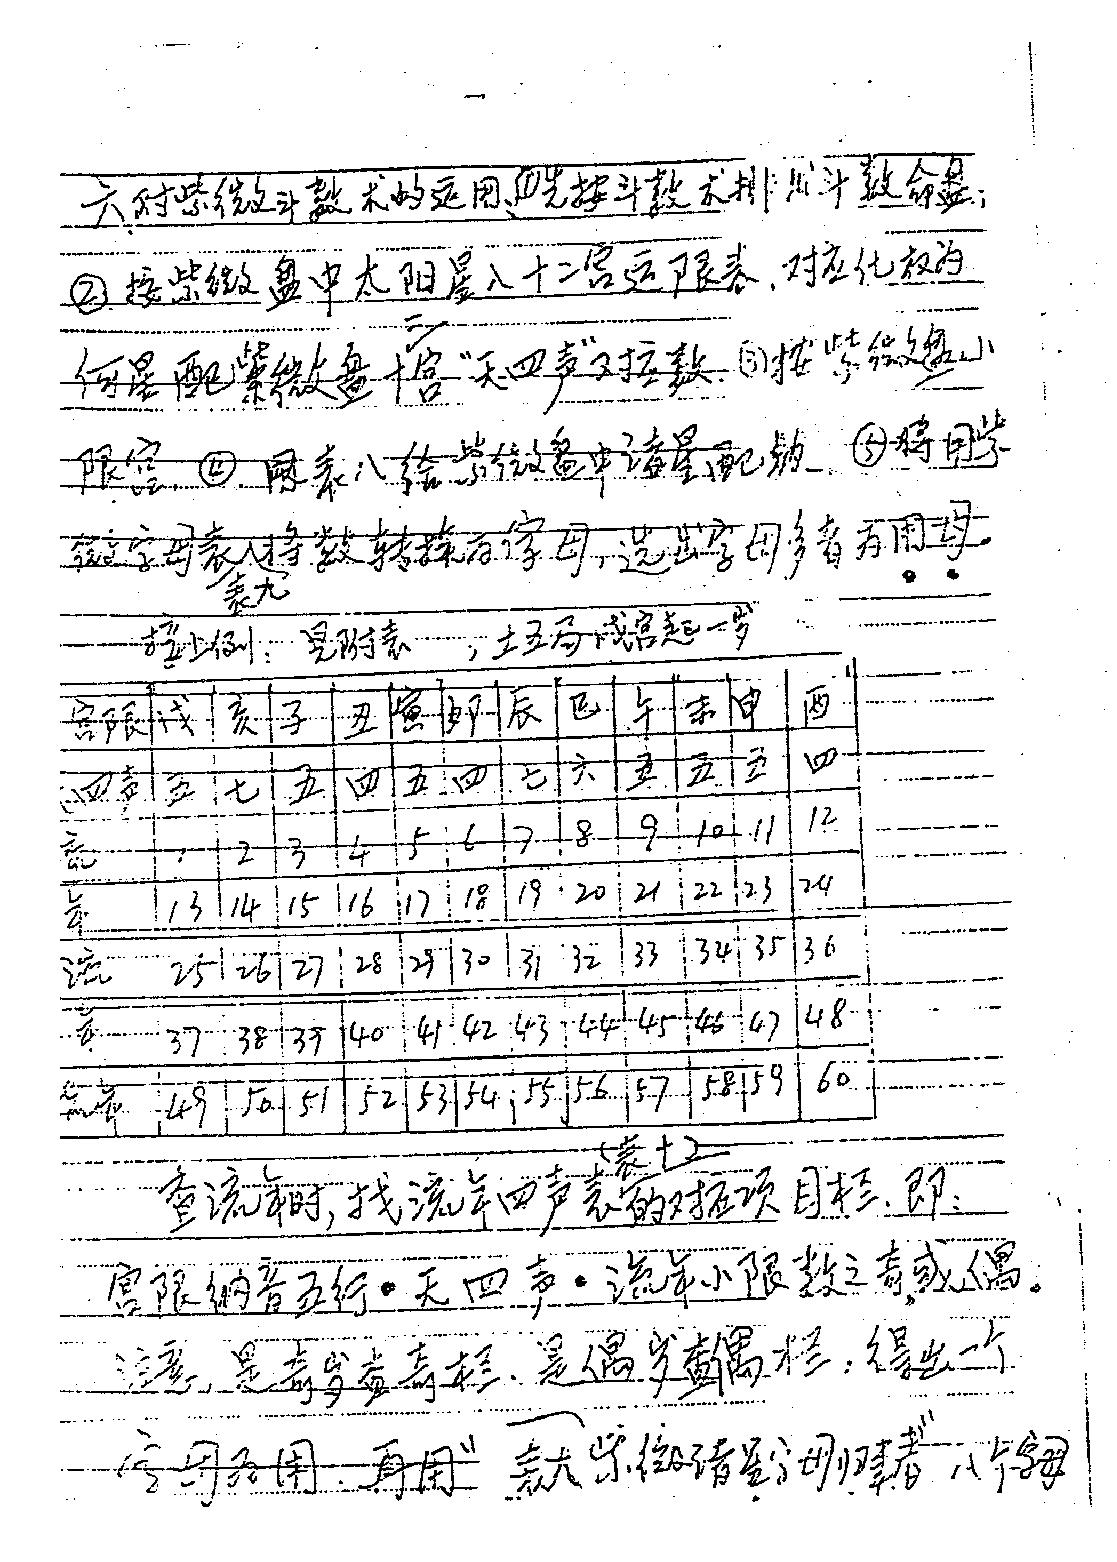 六对紫微斗数术的运用、①先按斗数术排出斗数命盘；
②按紫微盘中太阳星入十二宫运限表、对应化放为
何星配紫微盘十二宫"天四声"对应数、③按紫微盘小
限宫、④用表八给紫微盘中诸星配数、⑤将用紫
微字母表(表九)将数转换为字母，选出字母多者为用母。
按上例：见附表，土五局戌宫起一岁
宫限 戌 亥 子 丑 寅 卯 辰 巳 午 未 申 酉
四声 五 七 五 四 五 四 七 六 五 五 五 四
1 2 3 4 5 6 7 8 9 10 11 12
年 13 14 15 16 17 18 19 20 21 22 23 24
流 25 26 27 28 29 30 31 32 33 34 35 36
年 37 38 39 40 41 42 43 44 45 46 47 48
49 50 51 52 53 54 55 56 57 58 59 60
表十二
查流年时，找流年四声表的对应项目栏、即：
宫限纳音五行·天四声·流年小限数之奇或偶。
注意，是奇岁查奇栏、是偶岁查偶栏；得出一个
字母为用、再用"表六紫微诸星字母归\u200b者"八个字母